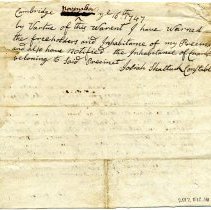 Cambridge November ye 16th 1747
by Vartue of this Warrent I have Warned
the freeholders and Inhabitance of my Precinct
and also have Notified the Inhabitance of
belonging to said Precinct
Josiah Shattuck Constable